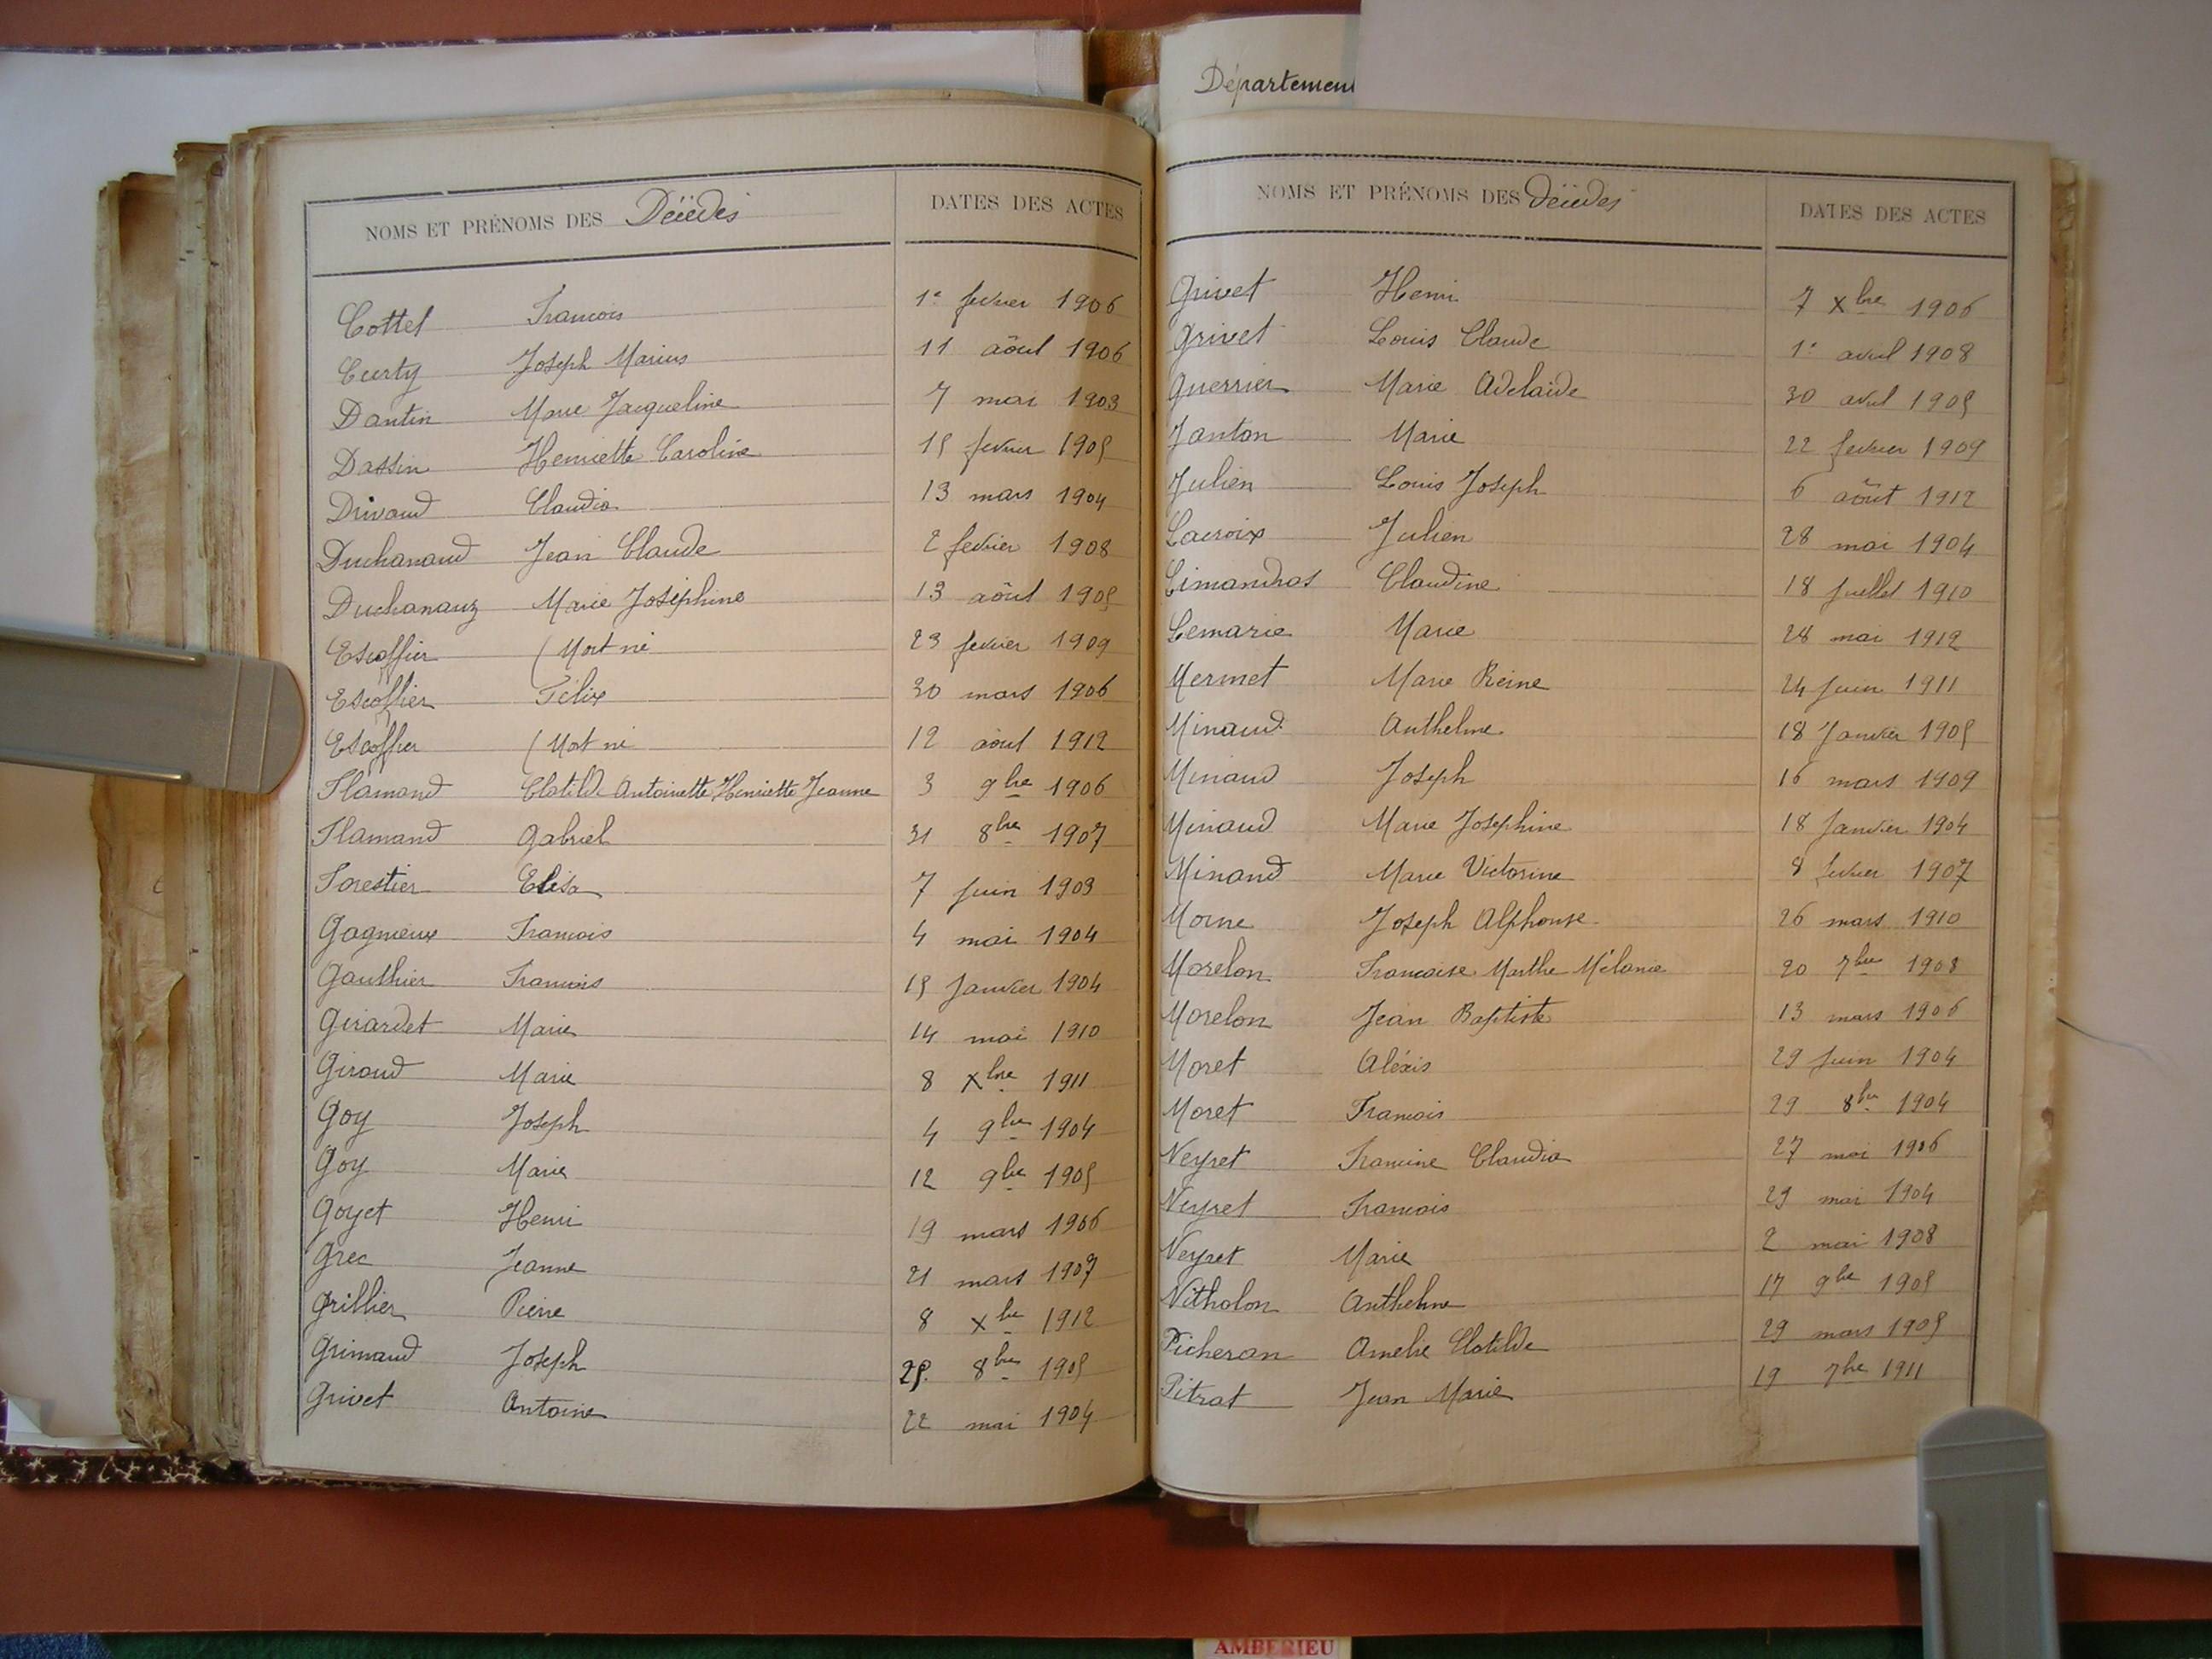 Département
NOMS ET PRÉNOMS DES Décédés DATES DES ACTES
Cottet François 1er fevrier 1906
Curty Joseph Marius 11 aôut 1906
Dantin Marie Jacqueline 7 mai 1903
Dassin Henriette Caroline 15 fevrier 1905
Drivaud Claudia 13 mars 1904
Duchanaud Jean Claude 2 fevrier 1908
Duchanauz Marie Joséphine 13 aôut 1905
Escoffier (Mort né 23 fevrier 1909
Escoffier Félix 30 mars 1906
Escoffier (Mort né 12 aôut 1912
Flamand Clotilde Antoinette Henriette Jeanne 3 9bre 1906
Flamand Gabriel 31 8bre 1907
Forestier Elisa 7 Juin 1903
Gagnieux François 4 mai 1904
Gauthier François 15 Janvier 1904
Girardet Marie 14 mai 1910
Giraud Marie 8 Xbre 1911
Goy Joseph 4 9bre 1904
Goy Marie 12 9bre 1905
Goyet Henri 19 mars 1906
Grec Jeanne 21 mars 1907
Grillier Pierre 8 Xbre 1912
Grimaud Joseph 25 8bre 1905
Grivet Antoine 22 mai 1904
NOMS ET PRÉNOMS DES Décédés DATES DES ACTES
Grivet Henri 7 Xbre 1906
Grivet Louis Claude 1er avril 1908
Guerrier Marie Adelaïde 30 avril 1905
Janton Marie 22 fevrier 1909
Julien Louis Joseph 6 aôut 1912
Lacroix Julien 28 mai 1904
Limandras Claudine 18 Juillet 1910
Lemarie Marie 28 mai 1912
Mermet Marie Reine 24 Juin 1911
Minaud Anthelme 18 Janvier 1905
Minaud Joseph 16 mars 1909
Minaud Marie Josephine 18 Janvier 1904
Minand Marie Victorine 8 fevrier 1907
Morne Joseph Alphonse 26 mars 1910
Morelon Françoise Marthe Mélanie 20 7bre 1908
Morelon Jean Baptiste 13 mars 1906
Moret Aléxis 29 Juin 1904
Moret François 29 8bre 1904
Neyret Francine Claudia 27 mai 1906
Neyret François 29 mai 1904
Neyret Marie 2 mai 1908
Nitholon Anthelme 17 9bre 1905
Picheran Amelie Clotilde 29 mars 1905
Pitrat Jean Marie 19 7bre 1911
AMBERIEU